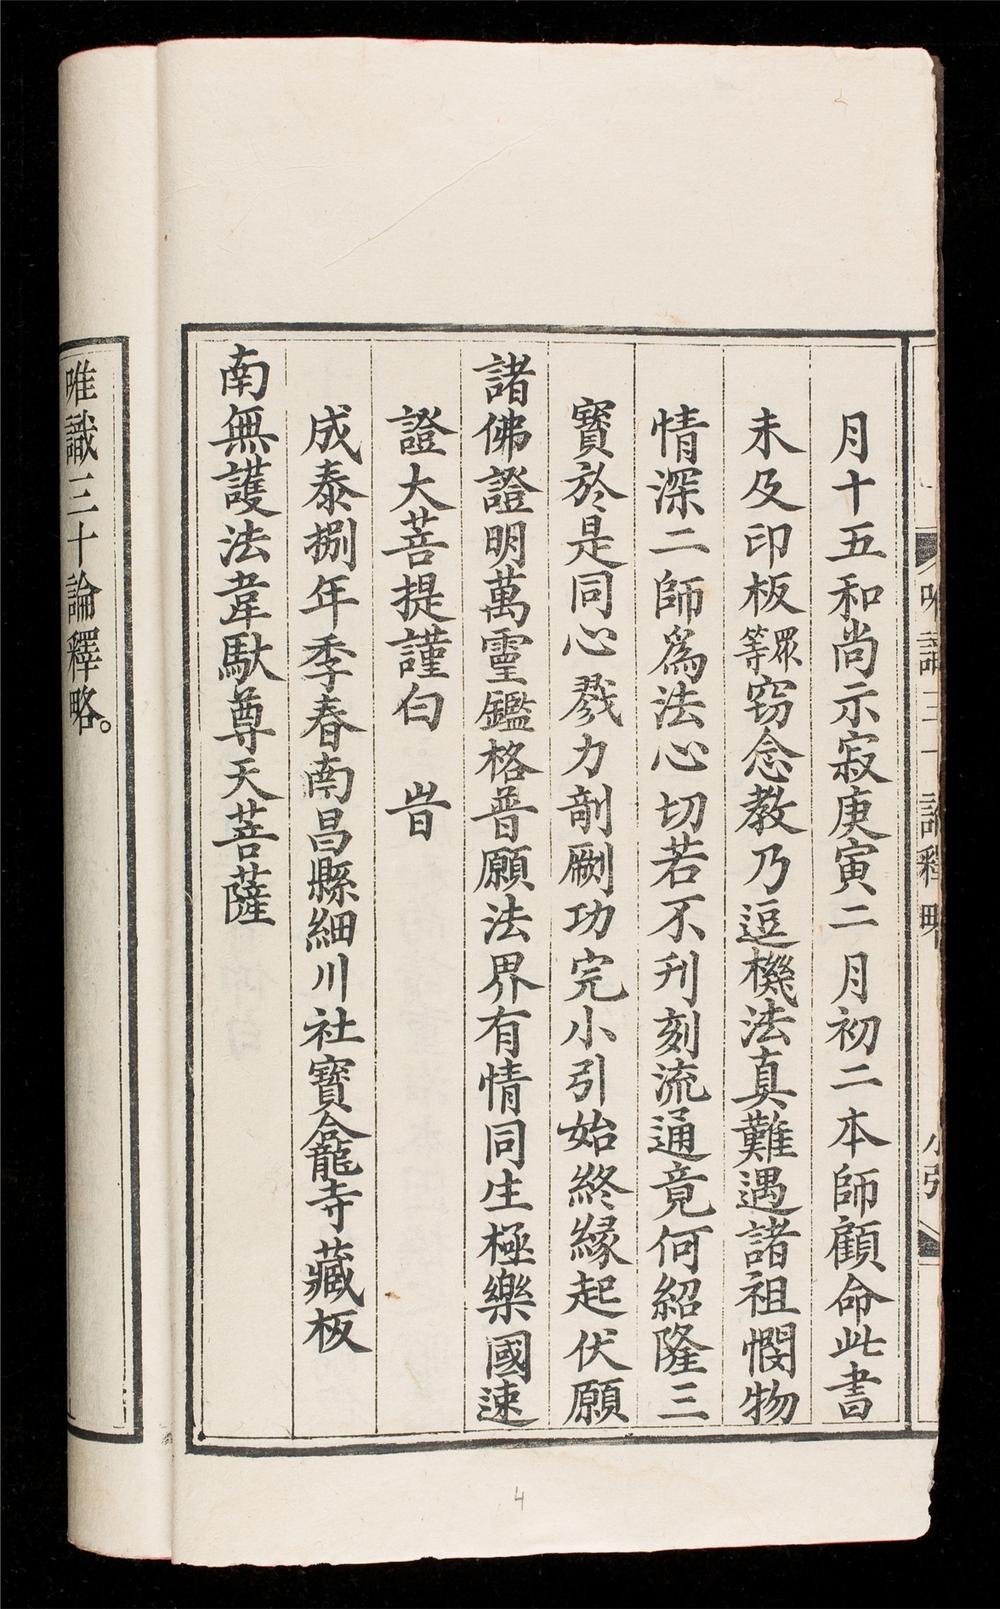 月十五和尚示寂庚寅二月初二本師顧命此書
未及印板等眾窃念教乃逗機法真難遇諸祖憫物
情深二師爲法心切若不刊刻流通竟何紹隆三
寳於是同心戮力剞劂功完小引始終縁起伏願
諸佛證明萬靈鑑格普願法界有情同生極樂國速
證大菩提謹白 旹
成泰捌年季春南昌縣細川社寶龕寺藏板
南無護法韋馱尊天菩薩
唯識三十論釋略。
4